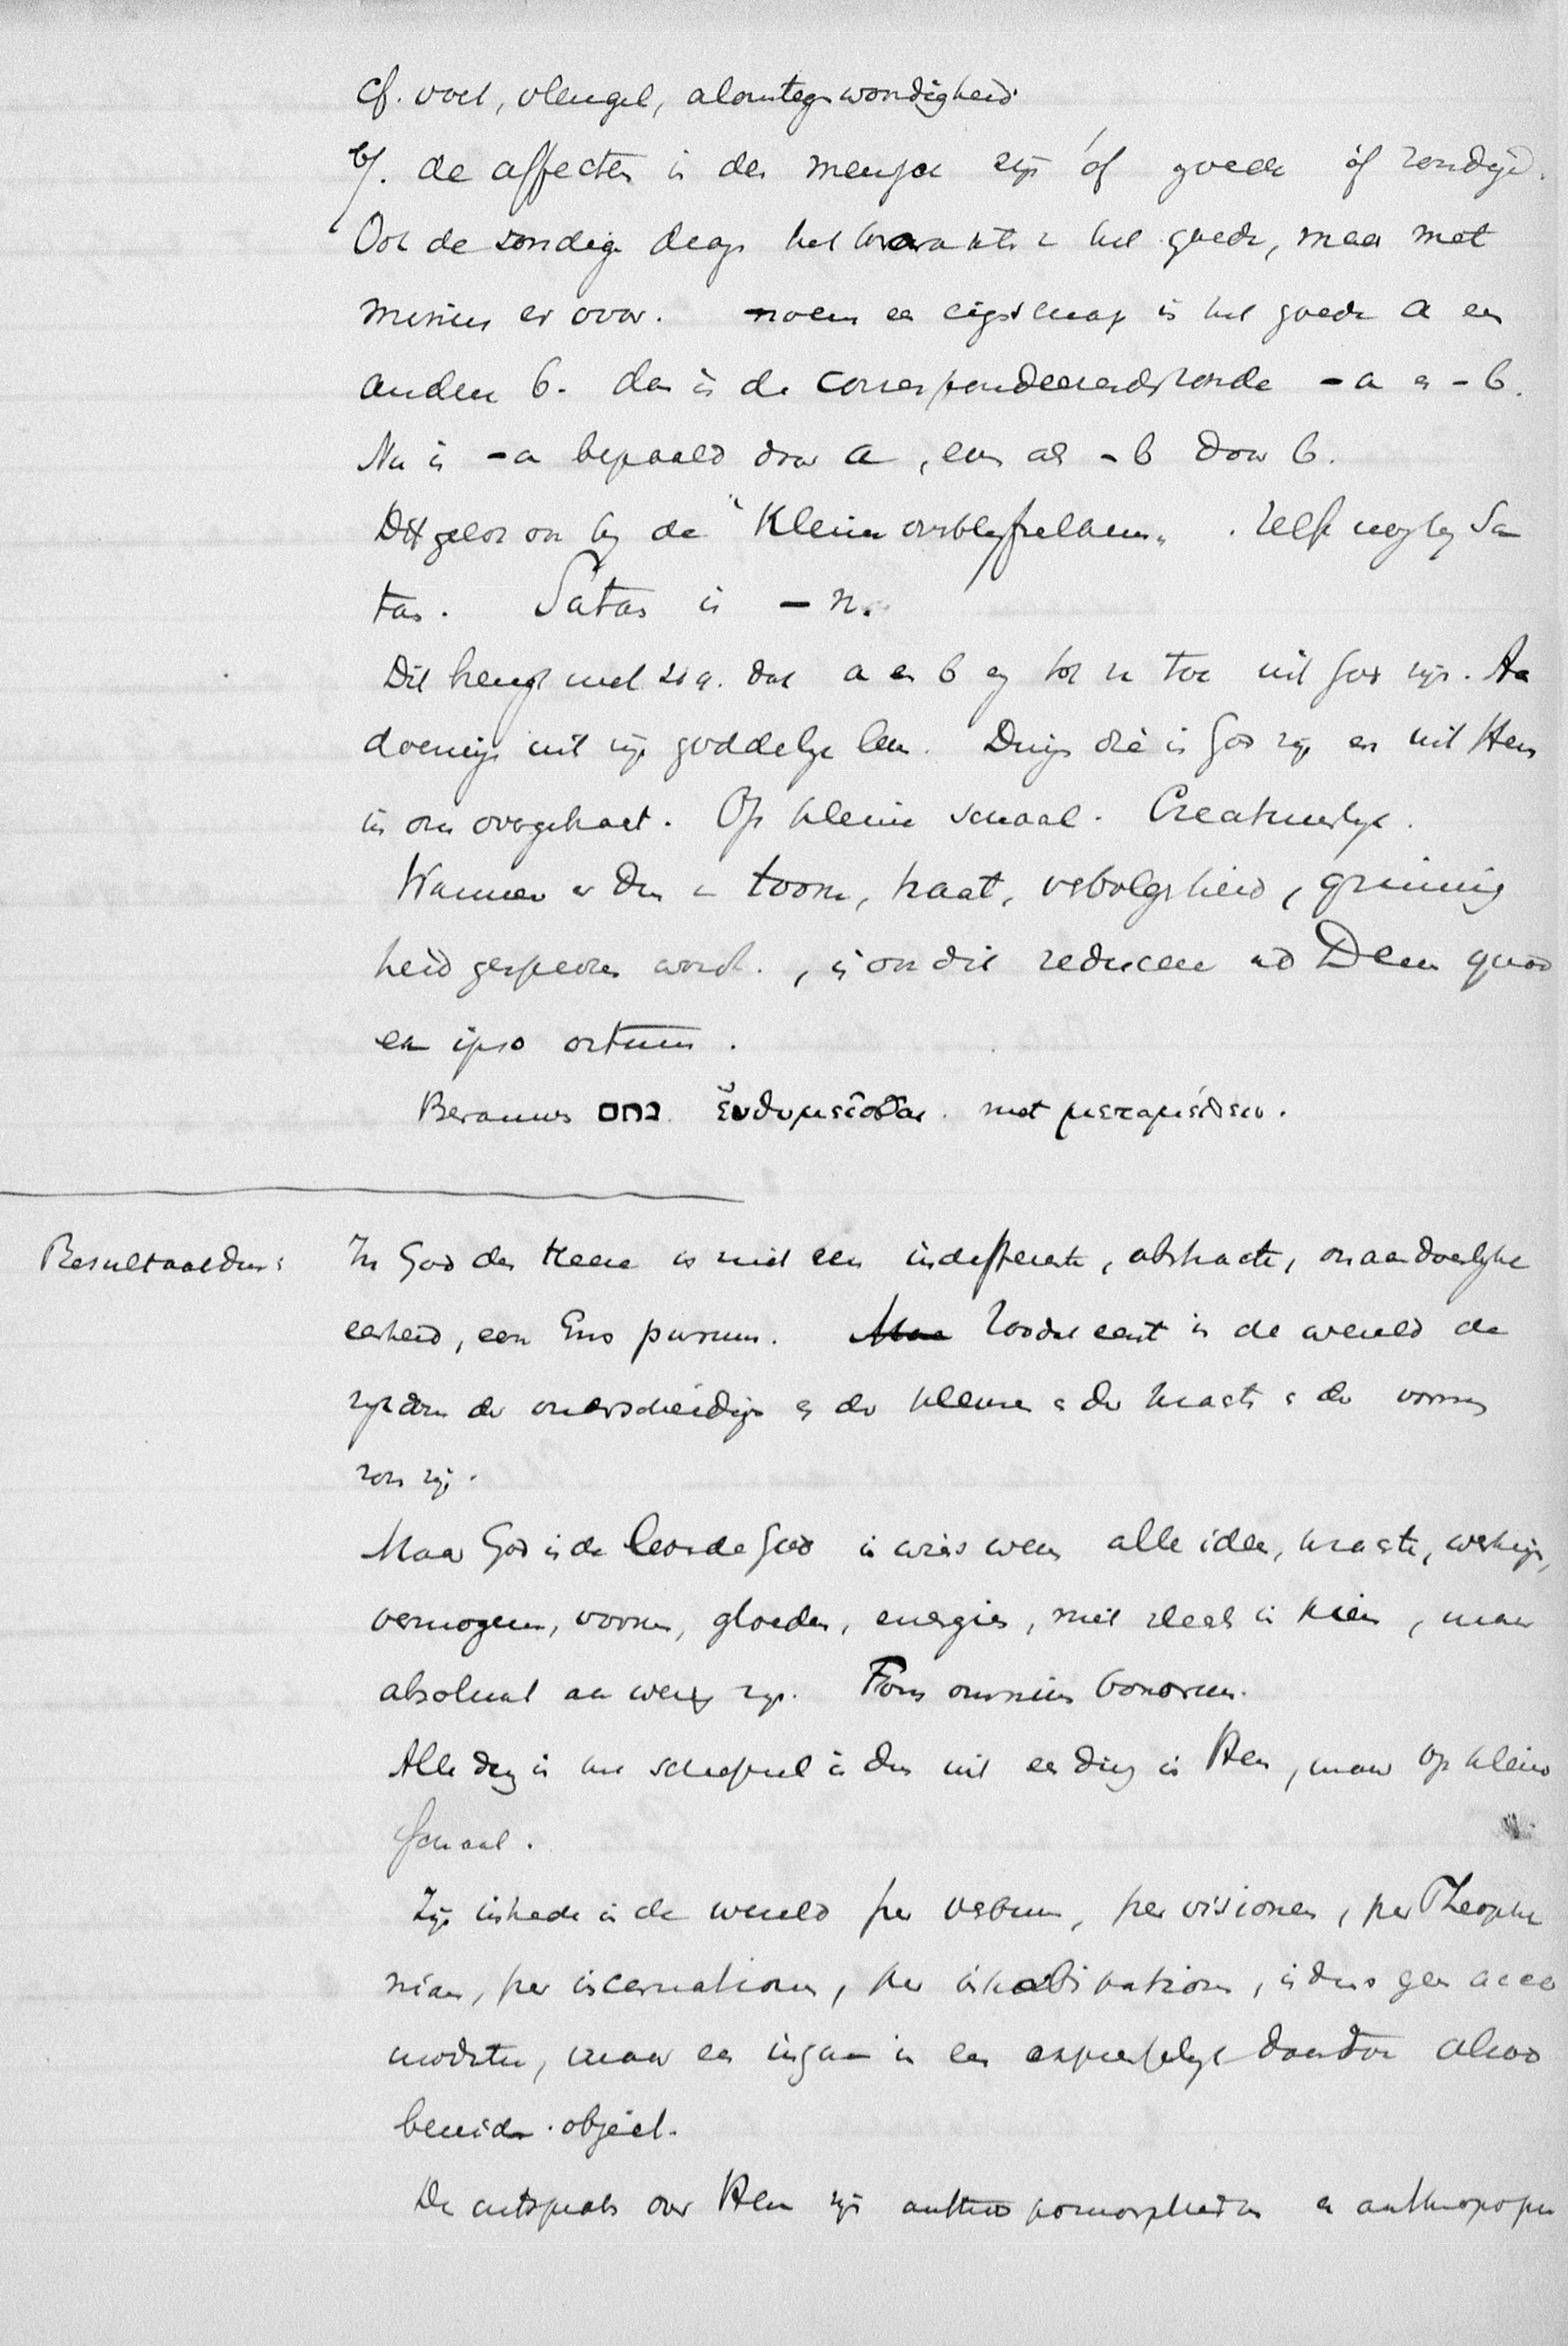 cf. voet, vleugel, alomtegenwoordigheid.
b/. de affecten in den mensch zijn óf goede óf zondige.
Ook de zondige drage het karakter v. het goede, maar met
minus er voor. noem en eigenschap in het goede a een
andere b. dan is de correspondeerende zonde - a en - b.
Nu is - a bepaald door a, even als - b door b.
Dit geldt ook bij de "Kleine overblijfselkens". Zelfs nog bij Sa
tan. Satan is - n.
Dit hengt met zich dat a en b en tot n toe uit God zijn. Aan
doeningen uit zijn goddelijk leven. Dingen die in God zijn en uit Hem
in ons overgebracht. Op kleine schaal. Creatuurlijk.
Wanneer er dus v. toorn, haat, verbolgenheid, grimmig
heid gesproken wordt, is ook dit reducere ad Deum quod
ex ipso ortum.
Berouw נחם ἐνθυμεῖσθαι. met μεταμέλειν.
Resultaat dus:
In God den Heere is niet een indifferente, abstracte, onaandoenlijke
eenheid, een Ens purum. Zoodat eerst in de wereld de
rijkdom der onderscheidingen en der kleuren en der kracht en der vormen
zou zijn.
Maar God is de levende God in wiens wezen alle ideën, kracht, werking,
vermogens, vormen, gloeden, energiën, niet slechts in kiem, maar
absoluut aanwezig zijn. Fons omnium bonorum.
Alle ding in het schepsel is dus uit een ding in Hem, maar op kleine
schaal.
Zijn intrede in de wereld per verbum, per visionem, per Theopha
niam, per incarnationem, per inhabitationem, is dus geen acco
modatie, maar een ingaan in een expresselijk daartoe alzoo
bereide object.
De uitspraak over Hem zijn anthropomorphistisch en anthropopa